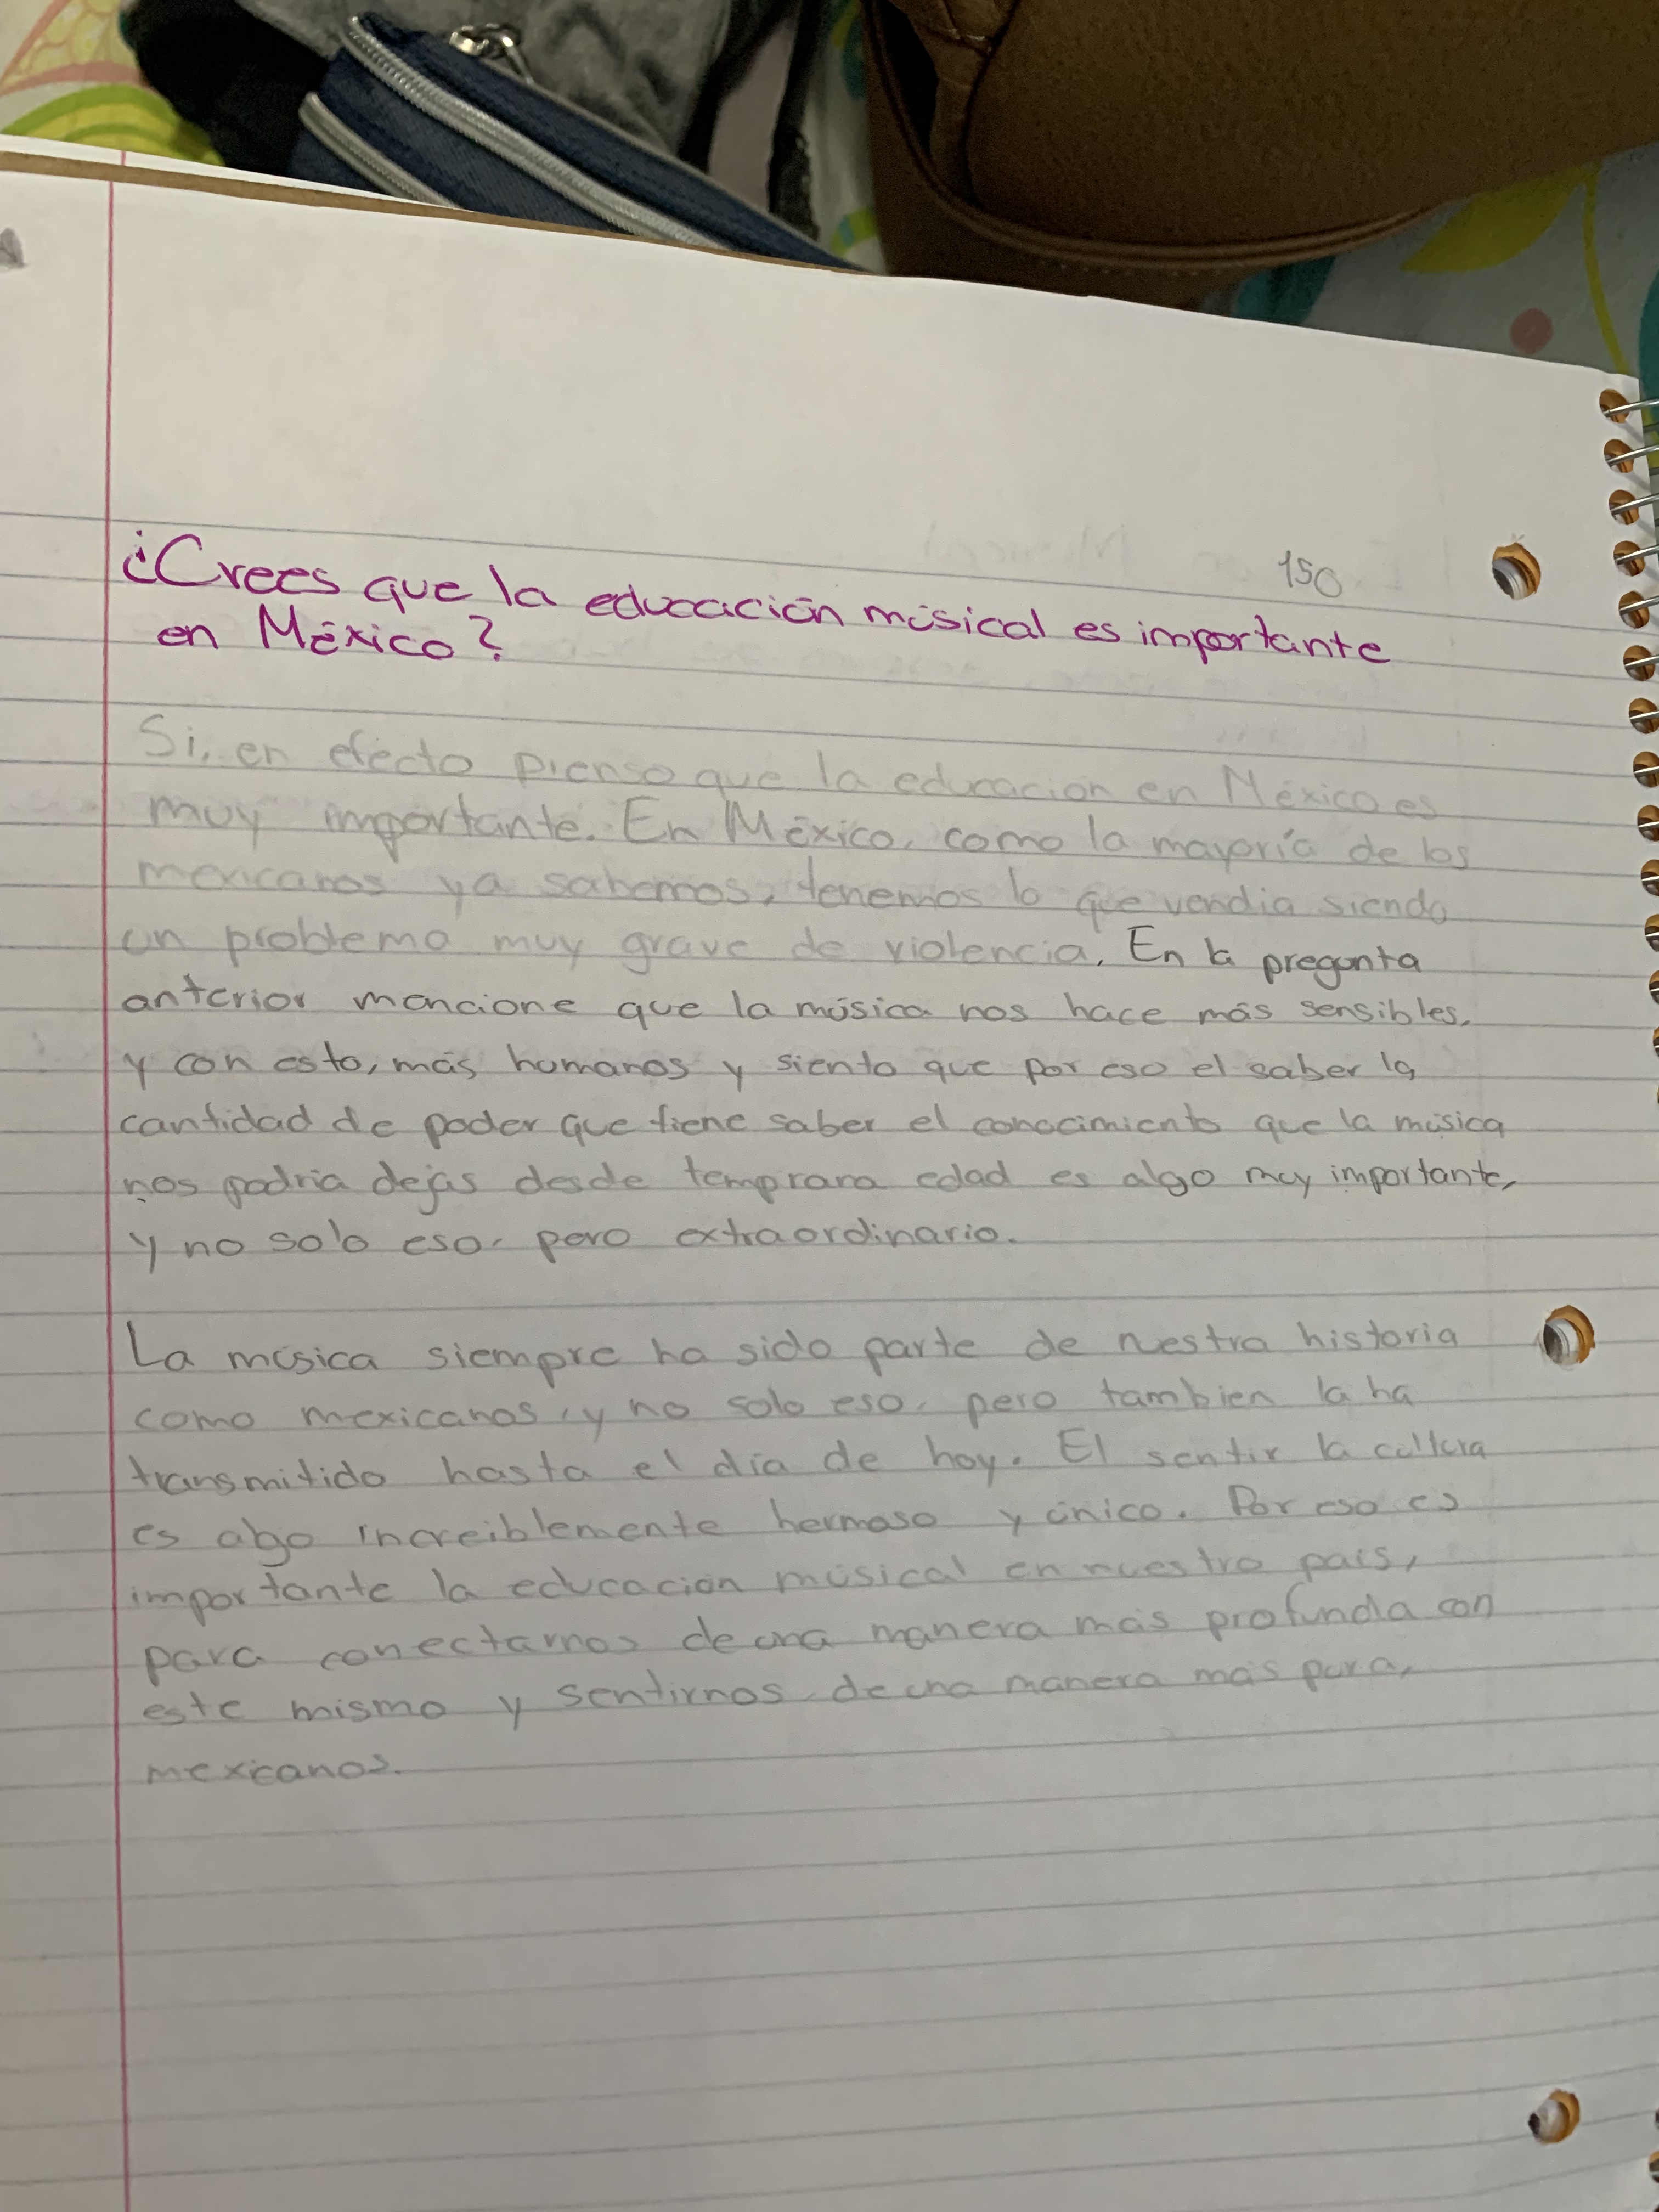 150
¿Crees que la educación músical es importante
en México?
Si, en efecto pienso que la educación en México es
muy importante. En México, como la mayoría de los
mexicanos ya sabemos, tenemos lo que vendia siendo
un problema muy grave de violencia. En la pregunta
anterior mencione que la música nos hace más sensibles,
y con esto, más humanos y siento que por eso el saber la
cantidad de poder que tiene saber el conocimiento que la música
nos podria dejas desde temprana edad es algo muy importante,
y no solo eso, pero extraordinario.
La música siempre ha sido parte de nuestra historia
como mexicanos, y no solo eso, pero tambien la ha
transmitido hasta el día de hoy. El sentir la cultura
es algo increiblemente hermoso y único. Por eso es
importante la educación músical en nuestro país,
para conectarnos de una manera más profunda con
este mismo y sentirnos, de una manera más pura,
mexicanos.